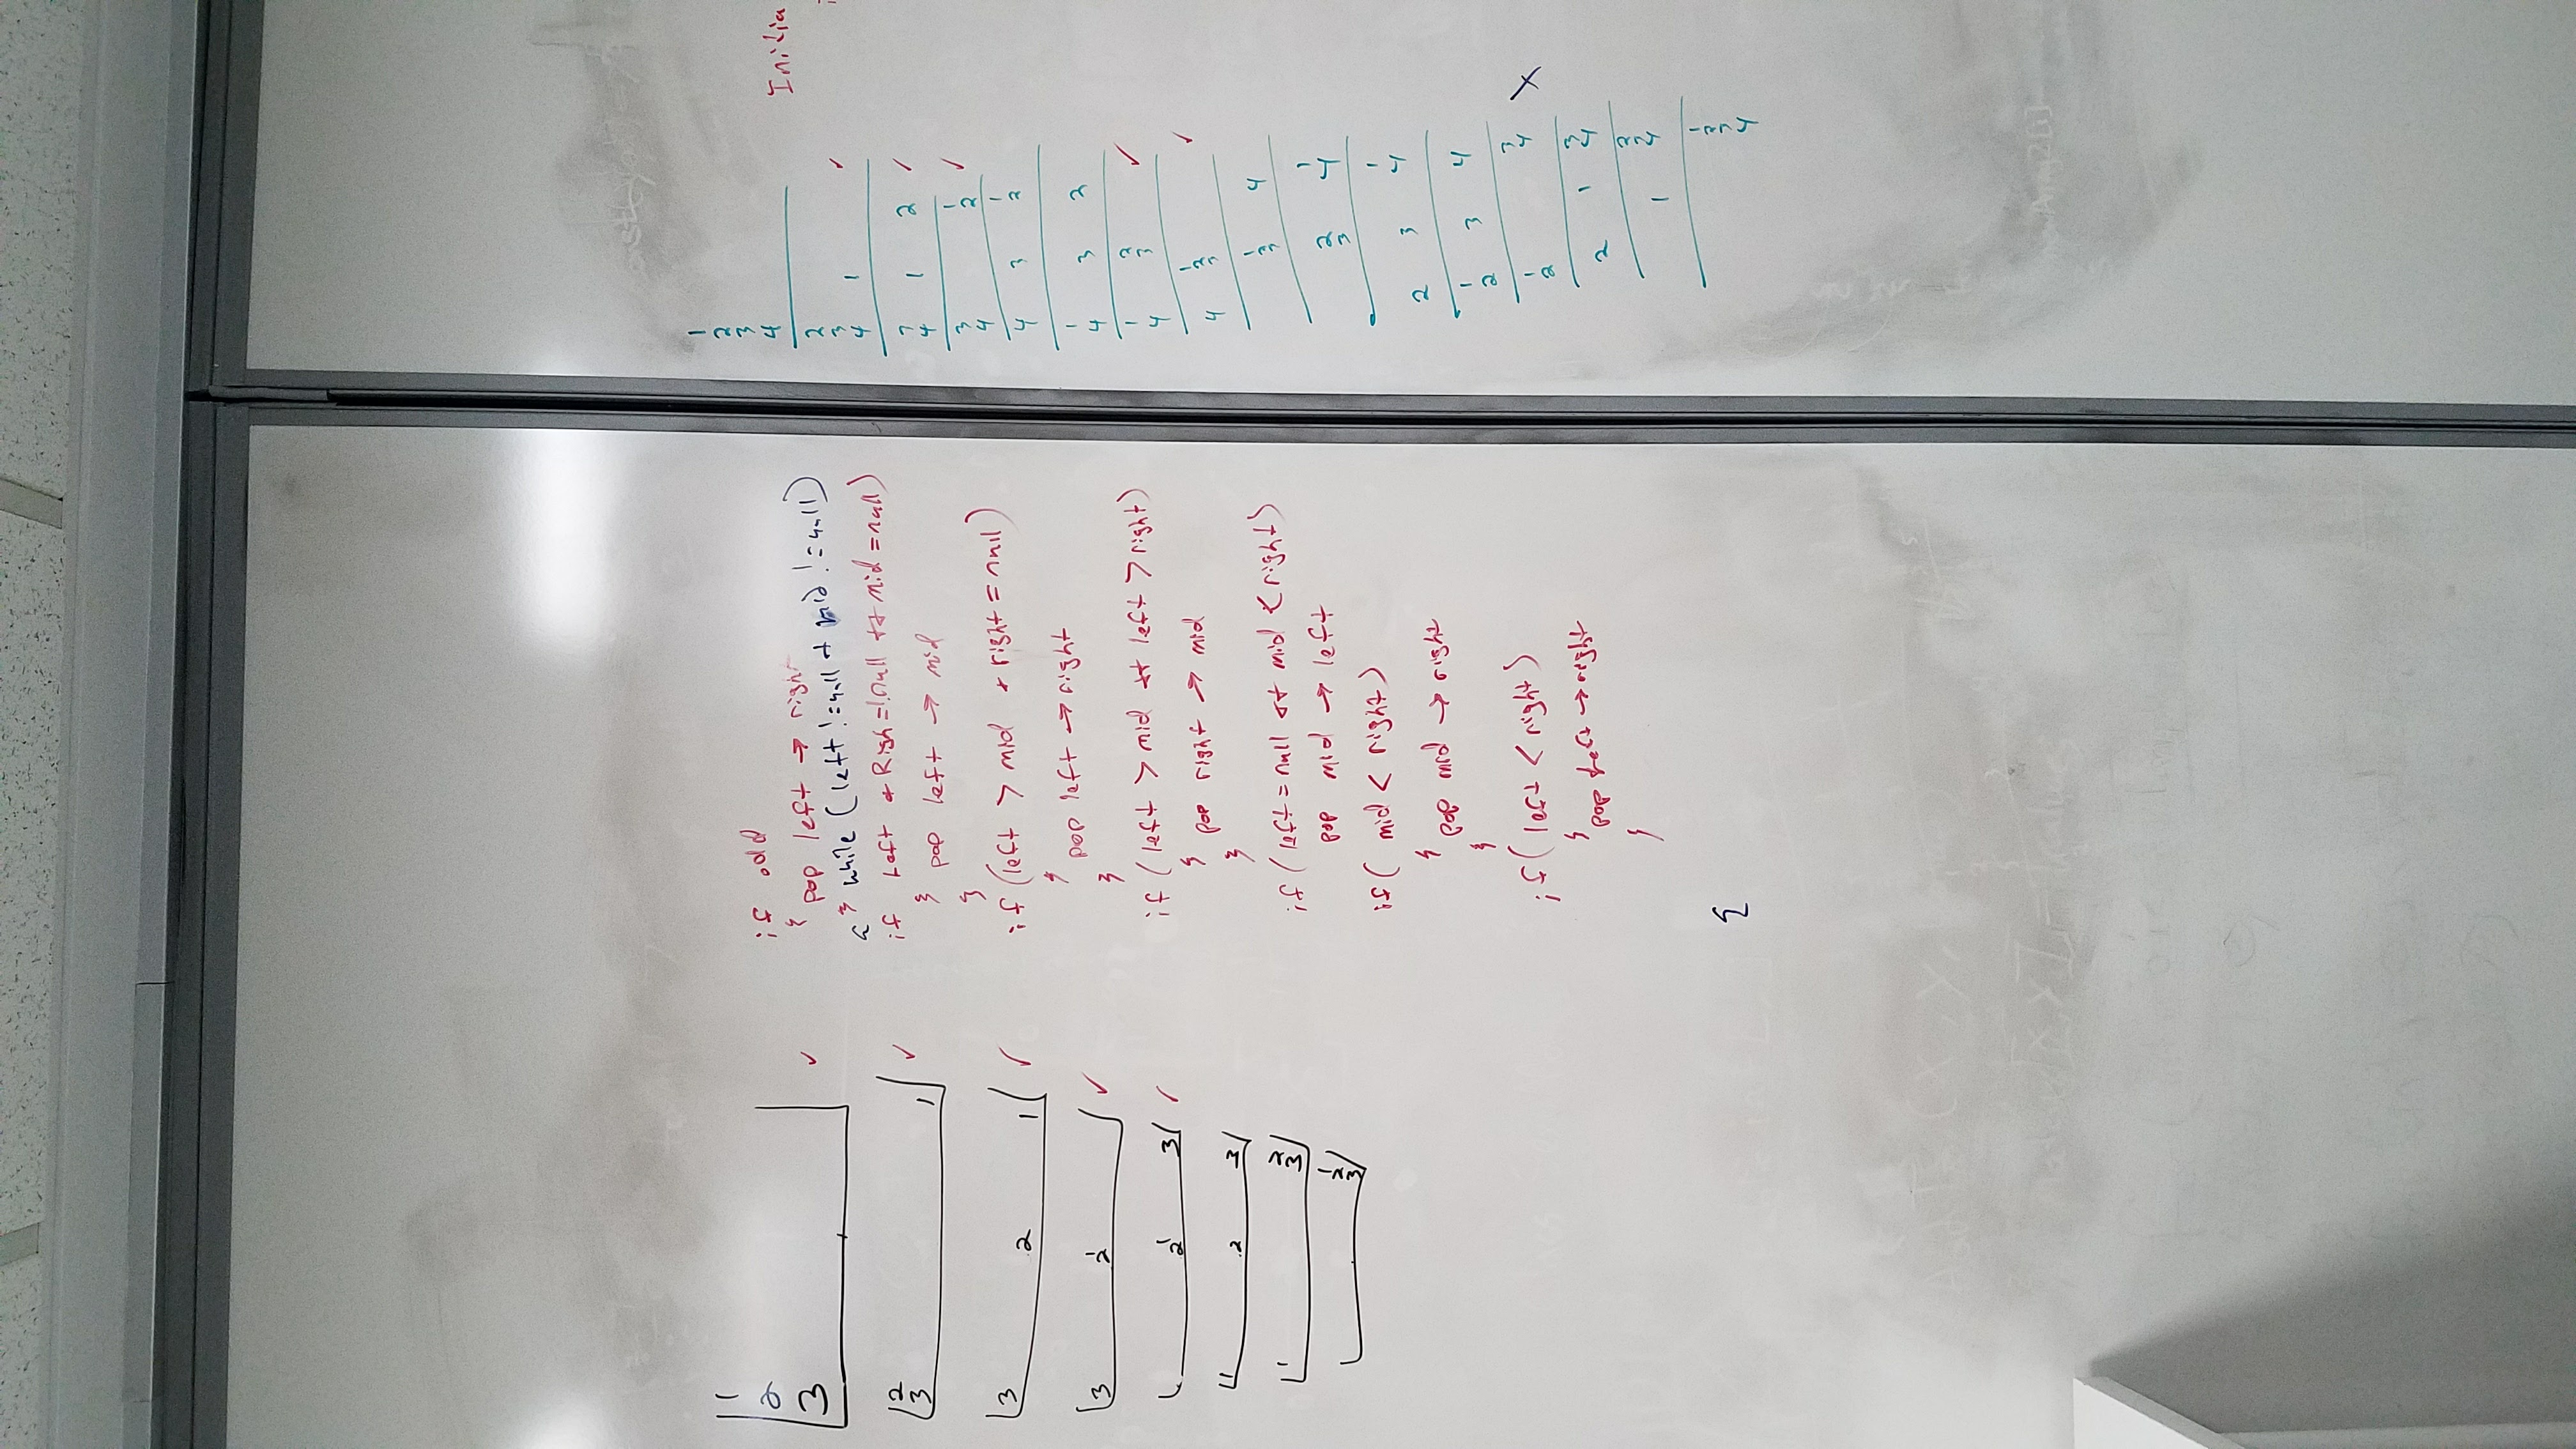 1
2
3
2
3 1
3 2 1
3 1
2
1
2 3
1 2 3
1 2
3
1
2
3
if odd
{ pop left → right
} while (left != null + mid != null)
if Left + Righ=!null ++ mid = null)
{ pop left → mid
}
if (left > mid + right = null)
{
pop left → right
}
if (left > mid ++ left > right)
{ pop right → mid
}
if (left = null ++ mid < right)
pop mid → left
if ( mid < right)
{ pop mid → right
}
if ( left < right)
{ pop left → right
}
{
1
2
3
4
2
3
4 1
3
4 1 2
3 1
4 2
1
4 3 2
1
4 3 2
1 2
4 3
1
2
4 3
1
2
3 4
2 1
3 4
1
2 3 4
1
2 3 4
1 3
2 4
3
2 1 4
2
3
1 4
1
2
3
4
Initia